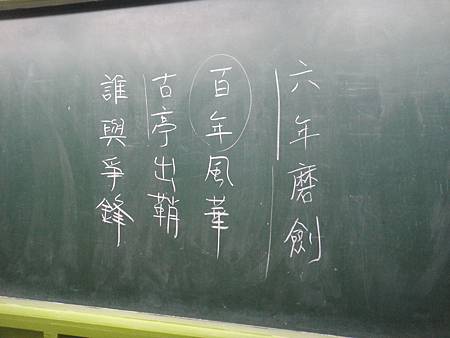 六年磨劍
百年風華
古亭出鞘
誰與爭鋒